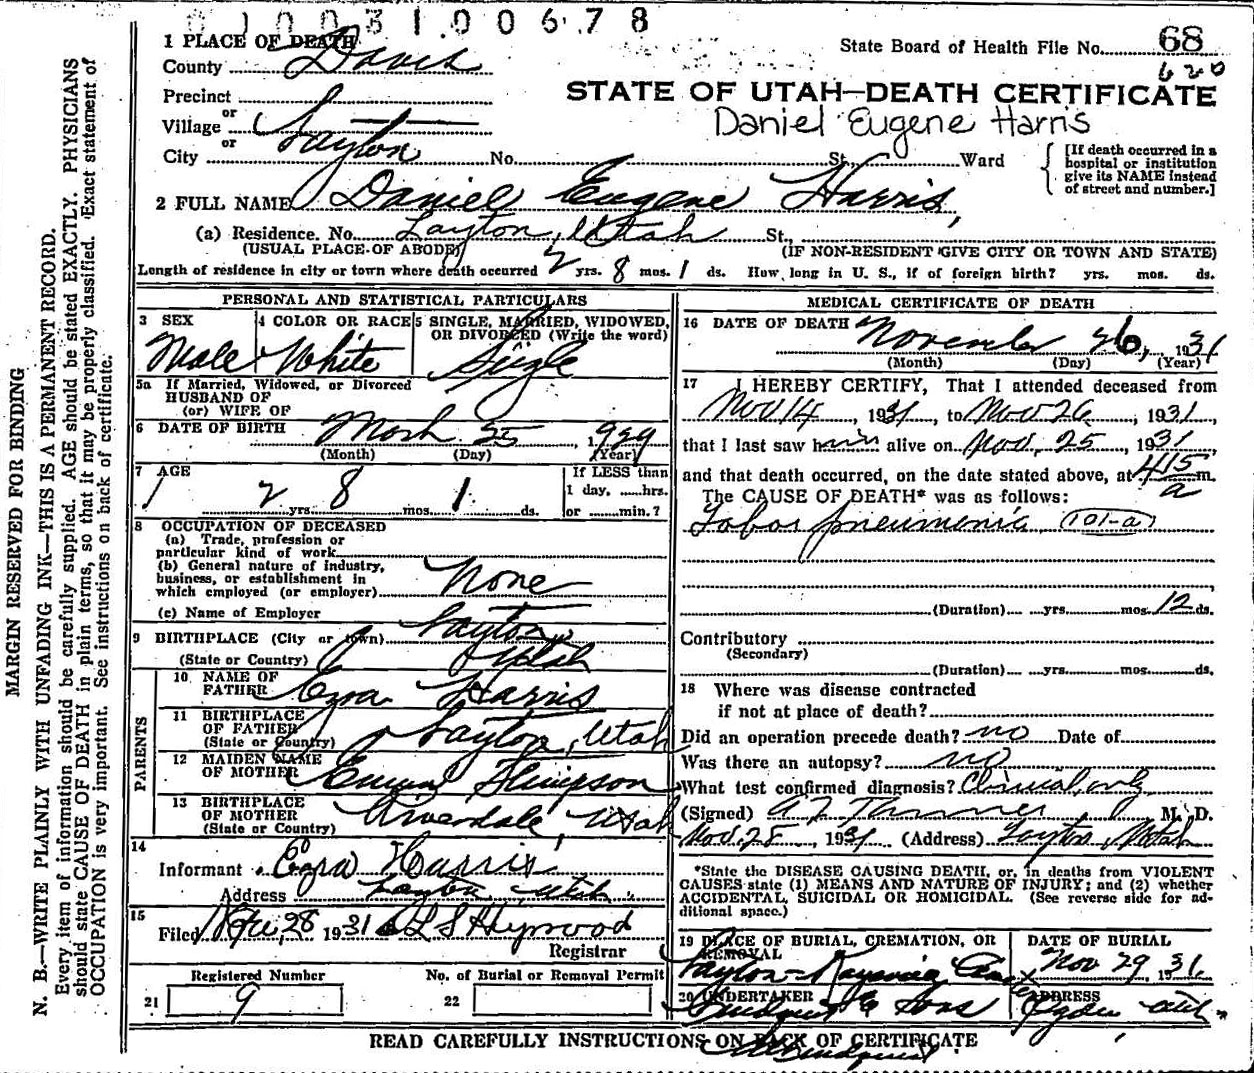 0 1 0 0 3 1 0 0 6 7 8
State Board of Health File No. 68
620
STATE OF UTAH—DEATH CERTIFICATE
Daniel Eugene Harris
1 PLACE OF DEATH
County Davis
Precinct
or
Village
or
City Layton No. St., Ward
[If death occurred in a hospital or institution give its NAME instead of street and number.]
2 FULL NAME Daniel Eugene Harris,
(a) Residence. No. Layton, Utah St.,
(USUAL PLACE OF ABODE) (IF NON-RESIDENT GIVE CITY OR TOWN AND STATE)
Length of residence in city or town where death occurred 2 yrs. 8 mos. 1 ds. How long in U. S., if of foreign birth? yrs. mos. ds.
PERSONAL AND STATISTICAL PARTICULARS
3 SEX 4 COLOR OR RACE 5 SINGLE, MARRIED, WIDOWED, OR DIVORCED (Write the word)
Male White Single
5a If Married, Widowed, or Divorced
HUSBAND OF
(or) WIFE OF
6 DATE OF BIRTH March 25, 1929
(Month) (Day) (Year)
7 AGE If LESS than
1 day, ......hrs.
2 yrs. 8 mos. 1 ds. or ......min.?
8 OCCUPATION OF DECEASED
(a) Trade, profession or
particular kind of work
(b) General nature of industry,
business, or establishment in
which employed (or employer) None
(c) Name of Employer
9 BIRTHPLACE (City or town) Layton
(State or Country) Utah
PARENTS
10 NAME OF FATHER Ezra Harris
11 BIRTHPLACE OF FATHER (State or Country) Layton, Utah
12 MAIDEN NAME OF MOTHER Emma Simpson
13 BIRTHPLACE OF MOTHER (State or Country) Riverdale, Utah
14 Informant Ezra Harris
Address Layton, Utah.
15 Filed 28 1931 L S Heywood
Registrar
Registered Number No. of Burial or Removal Permit
21 9 22
MEDICAL CERTIFICATE OF DEATH
16 DATE OF DEATH November 26, 1931
(Month) (Day) (Year)
17 I HEREBY CERTIFY, That I attended deceased from
Nov 14, 1931, to Nov 26, 1931,
that I last saw him alive on Nov. 25, 1931,
and that death occurred, on the date stated above, at 4 15 m.
a
The CAUSE OF DEATH* was as follows:
Lobar pneumonia (101-a)
(Duration) yrs. mos. 12 ds.
Contributory
(Secondary)
(Duration) yrs. mos. ds.
18 Where was disease contracted
if not at place of death?
Did an operation precede death? no Date of
Was there an autopsy? no
What test confirmed diagnosis? Clinical only
(Signed) A Z Tanner M. D.
Nov. 28, 1931 (Address) Layton, Utah
*State the DISEASE CAUSING DEATH, or, in deaths from VIOLENT
CAUSES state (1) MEANS AND NATURE OF INJURY; and (2) whether
ACCIDENTAL, SUICIDAL OR HOMICIDAL. (See reverse side for ad-
ditional space.)
19 PLACE OF BURIAL, CREMATION, OR REMOVAL DATE OF BURIAL
Layton-Kaysville Nov 29, 1931.
20 UNDERTAKER ADDRESS
Lindquist & Sons Ogden Utah
READ CAREFULLY INSTRUCTIONS ON BACK OF CERTIFICATE
Lindquist
MARGIN RESERVED FOR BINDING
N. B.—WRITE PLAINLY WITH UNFADING INK—THIS IS A PERMANENT RECORD.
Every item of information should be carefully supplied. AGE should be stated EXACTLY. PHYSICIANS
should state CAUSE OF DEATH in plain terms, so that it may be properly classified. Exact statement of
OCCUPATION is very important. See instructions on back of certificate.